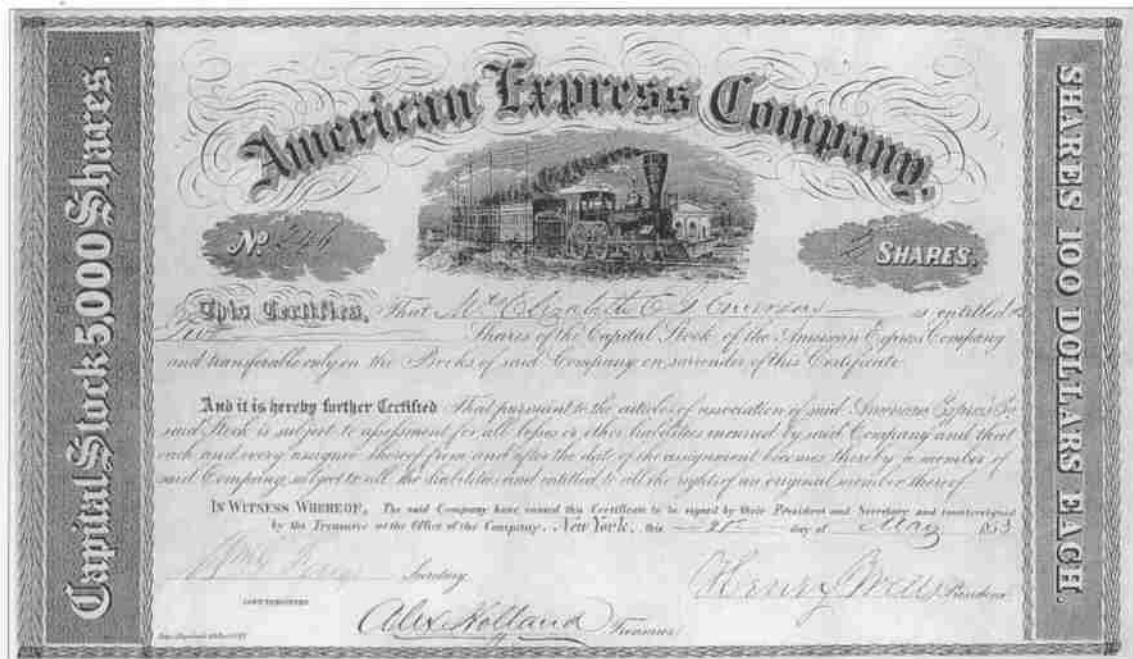 American Express Company.
Capital Stock 5,000 Shares.
SHARES 100 DOLLARS EACH.
No. 246
2 SHARES.
This Certifies, That Mrs Elizabeth E is entitled to
Two Shares of the Capital Stock of the American Express Company
and transferable only on the Books of said Company on surrender of this Certificate
And it is hereby further Certified That pursuant to the articles of association of said American Express Co
said Stock is subject to assessment for all losses or other liabilities incurred by said Company and that
each and every assignee thereof from and after the date of the assignment becomes thereby a member of
said Company subject to all the liabilities and entitled to all the rights of an original member thereof
IN WITNESS WHEREOF, The said Company have caused this Certificate to be signed by their President and Secretary and countersigned
by the Treasurer at the Office of the Company, New York, this day of May 1853
Secretary
Henry Wells President
COUNTERSIGNED
Alex Holland Treasurer